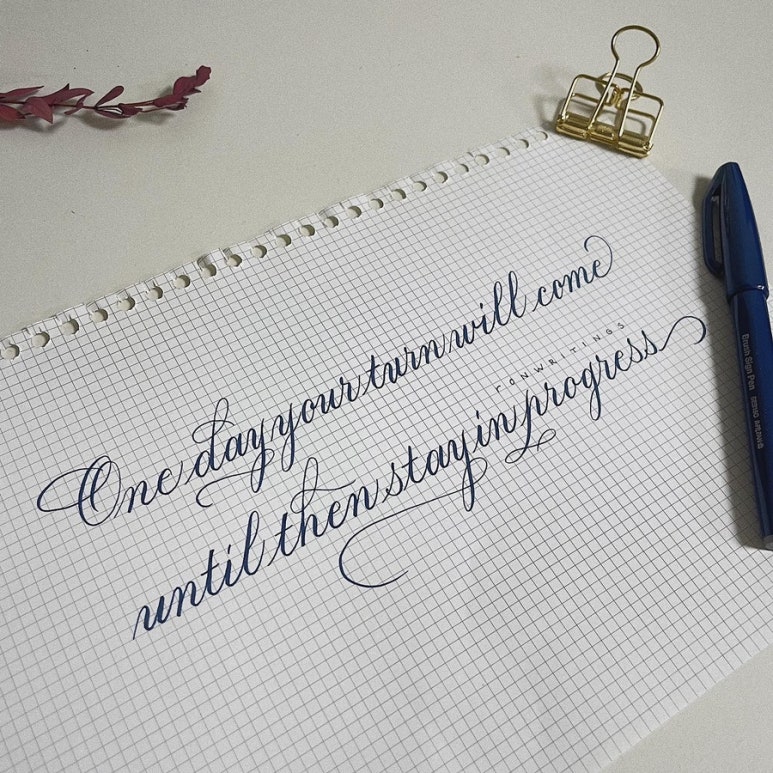 One day your turn will come
RONWRITINGS
until then stay in progress
Brush Sign Pen